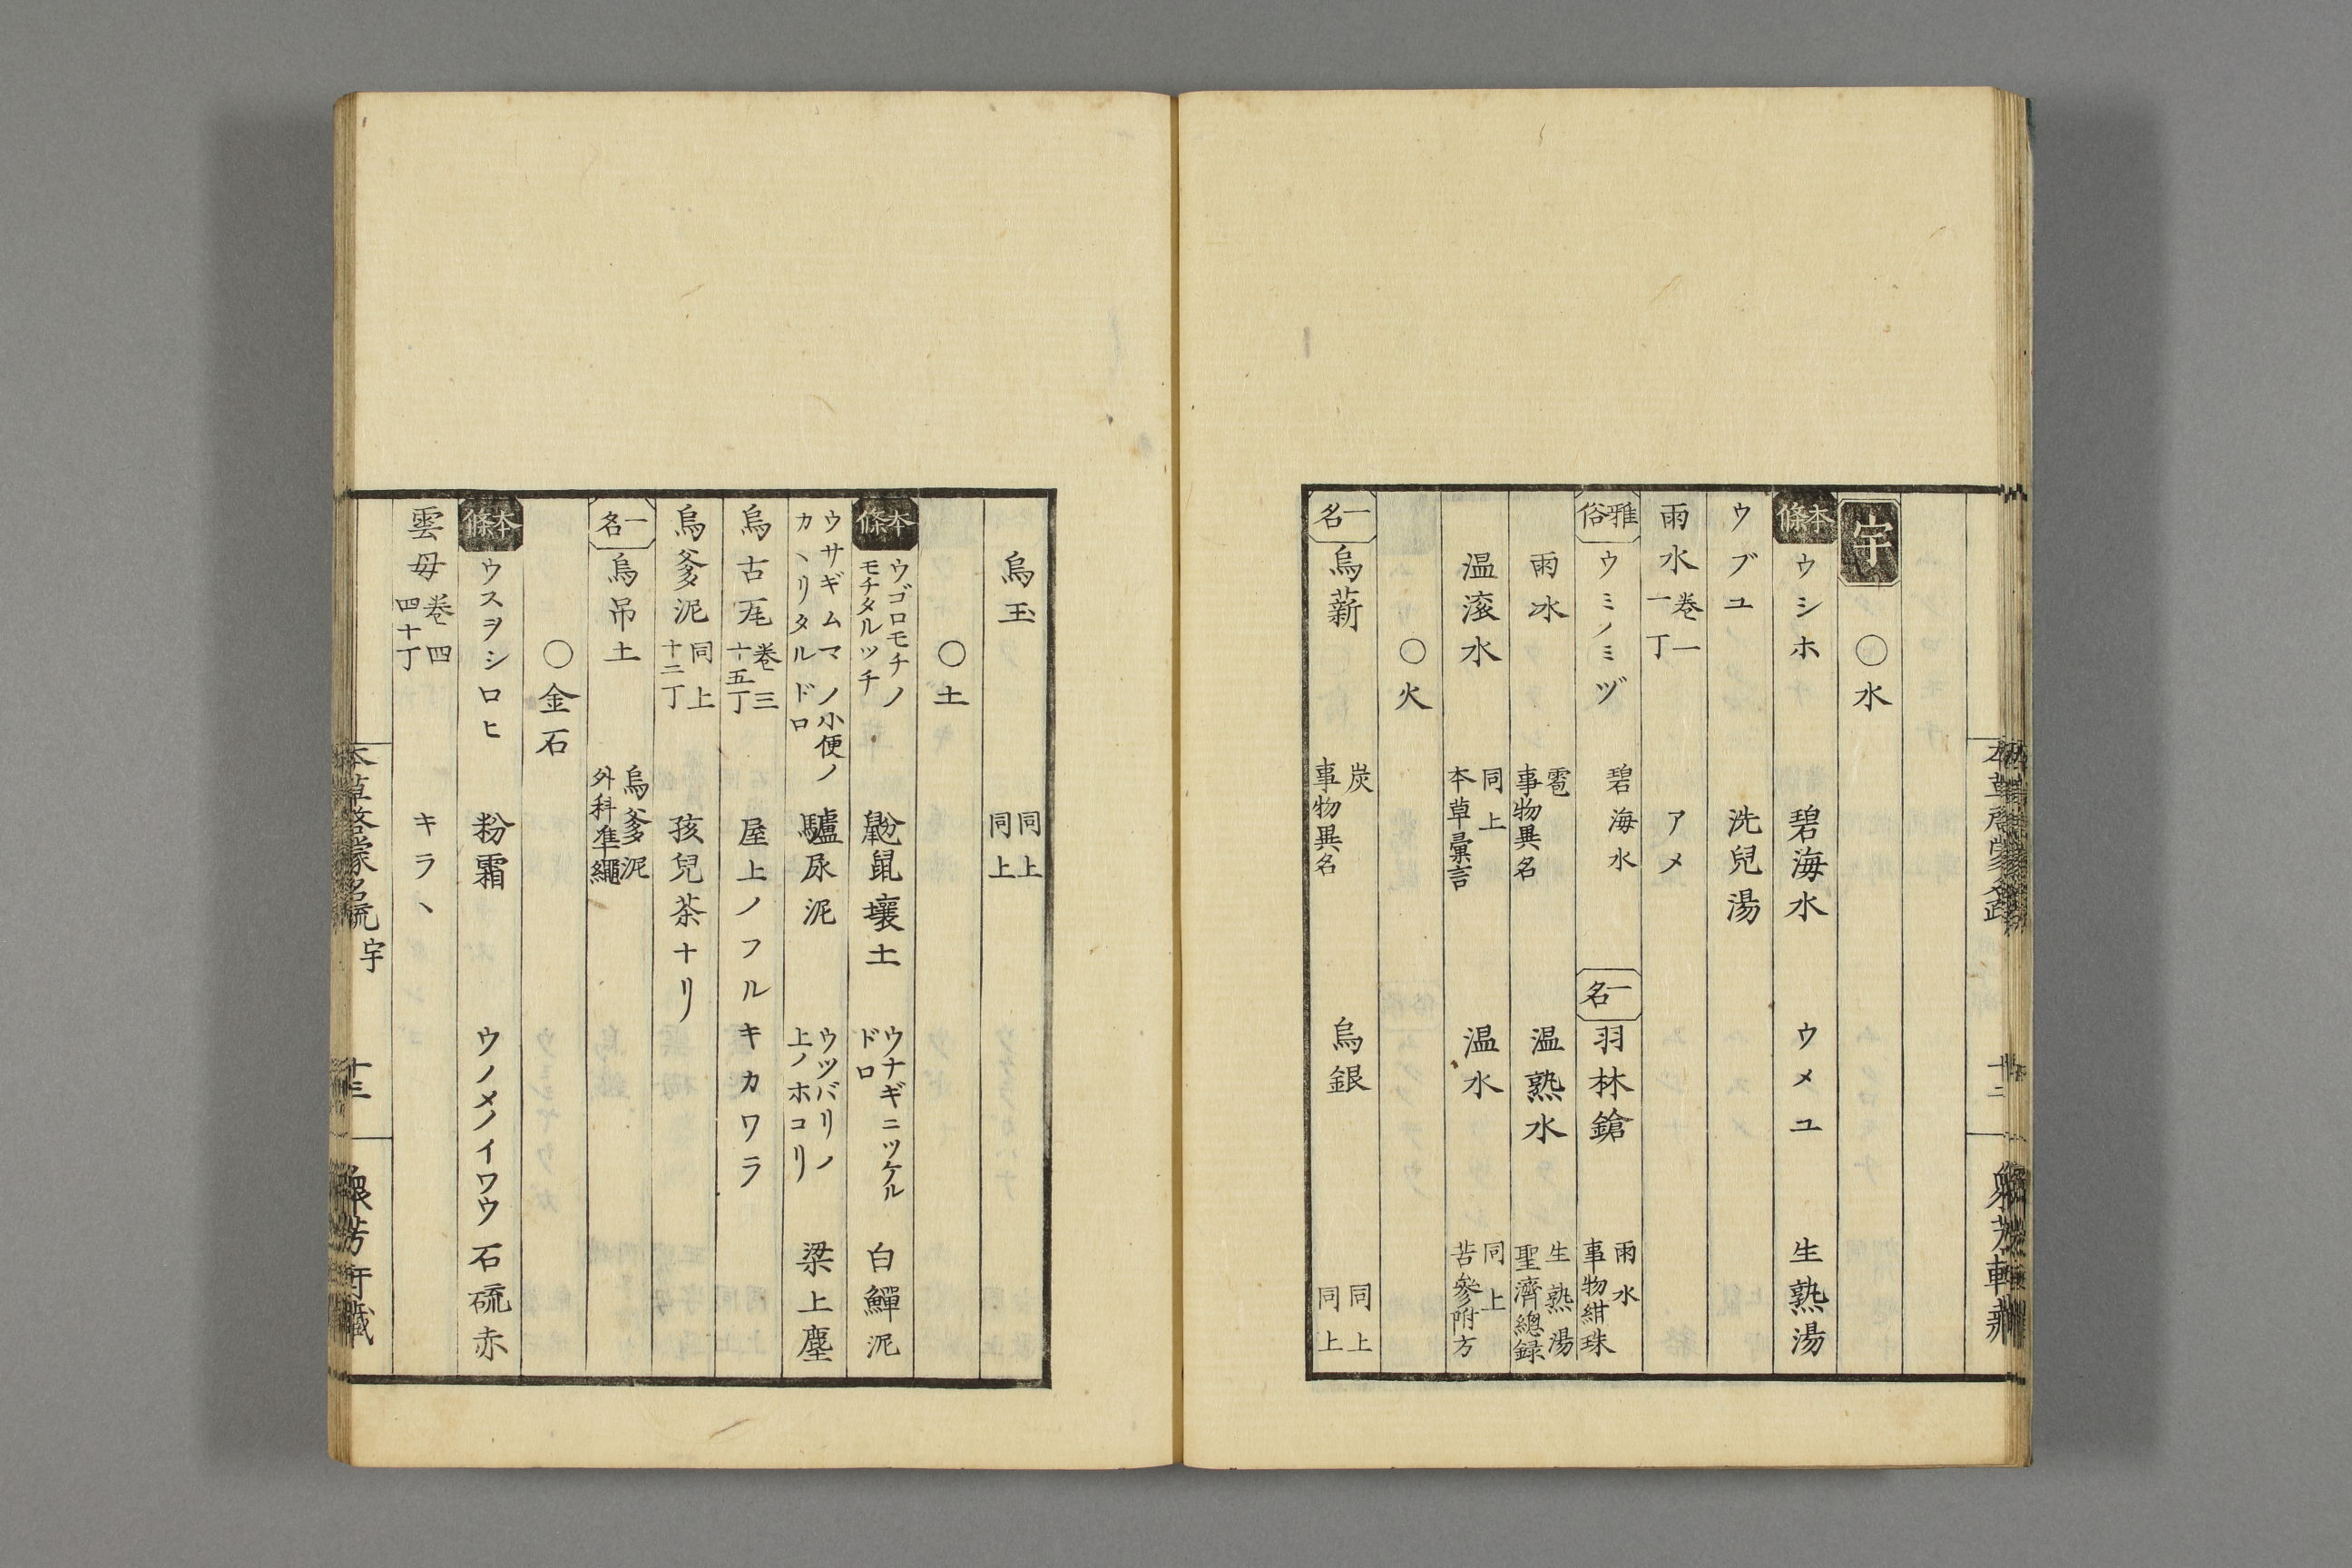 宇
○水
本條 ウシホ 碧海水 ウメユ 生熟湯
ウブユ 洗兒湯
雨水 卷一 一丁 アメ
雅俗 ウミノミヅ 碧海水 一名 羽林鎗 雨水 事物紺珠
雨冰 雹 事物異名 温熟水 生熟湯 聖濟總録
温滚水 同上 本草彙言 温水 同上 苦參附方
○火
一名 烏薪 炭 事物異名 烏銀 同上 同上
烏玉 同上 同上
○土
本條 ウゴロモチノモチタルツチ 鼢鼠壤土 ウナギニツケルドロ 白鱓泥
ウサギムマノ小便ノカヽリタルドロ 驢尿泥 ウツバリノ上ノホコリ 梁上塵
烏古瓦 卷三 十五丁 屋上ノフルキカワラ
烏爹泥 同上 十二丁 孩兒茶ナリ
一名 烏吊土 烏爹泥 外科準繩
○金石
本條 ウスヲシロヒ 粉霜 ウノメノイワウ 石硫赤
雲母 卷四 四十丁 キラヽ
本草啓蒙名疏 宇 十三